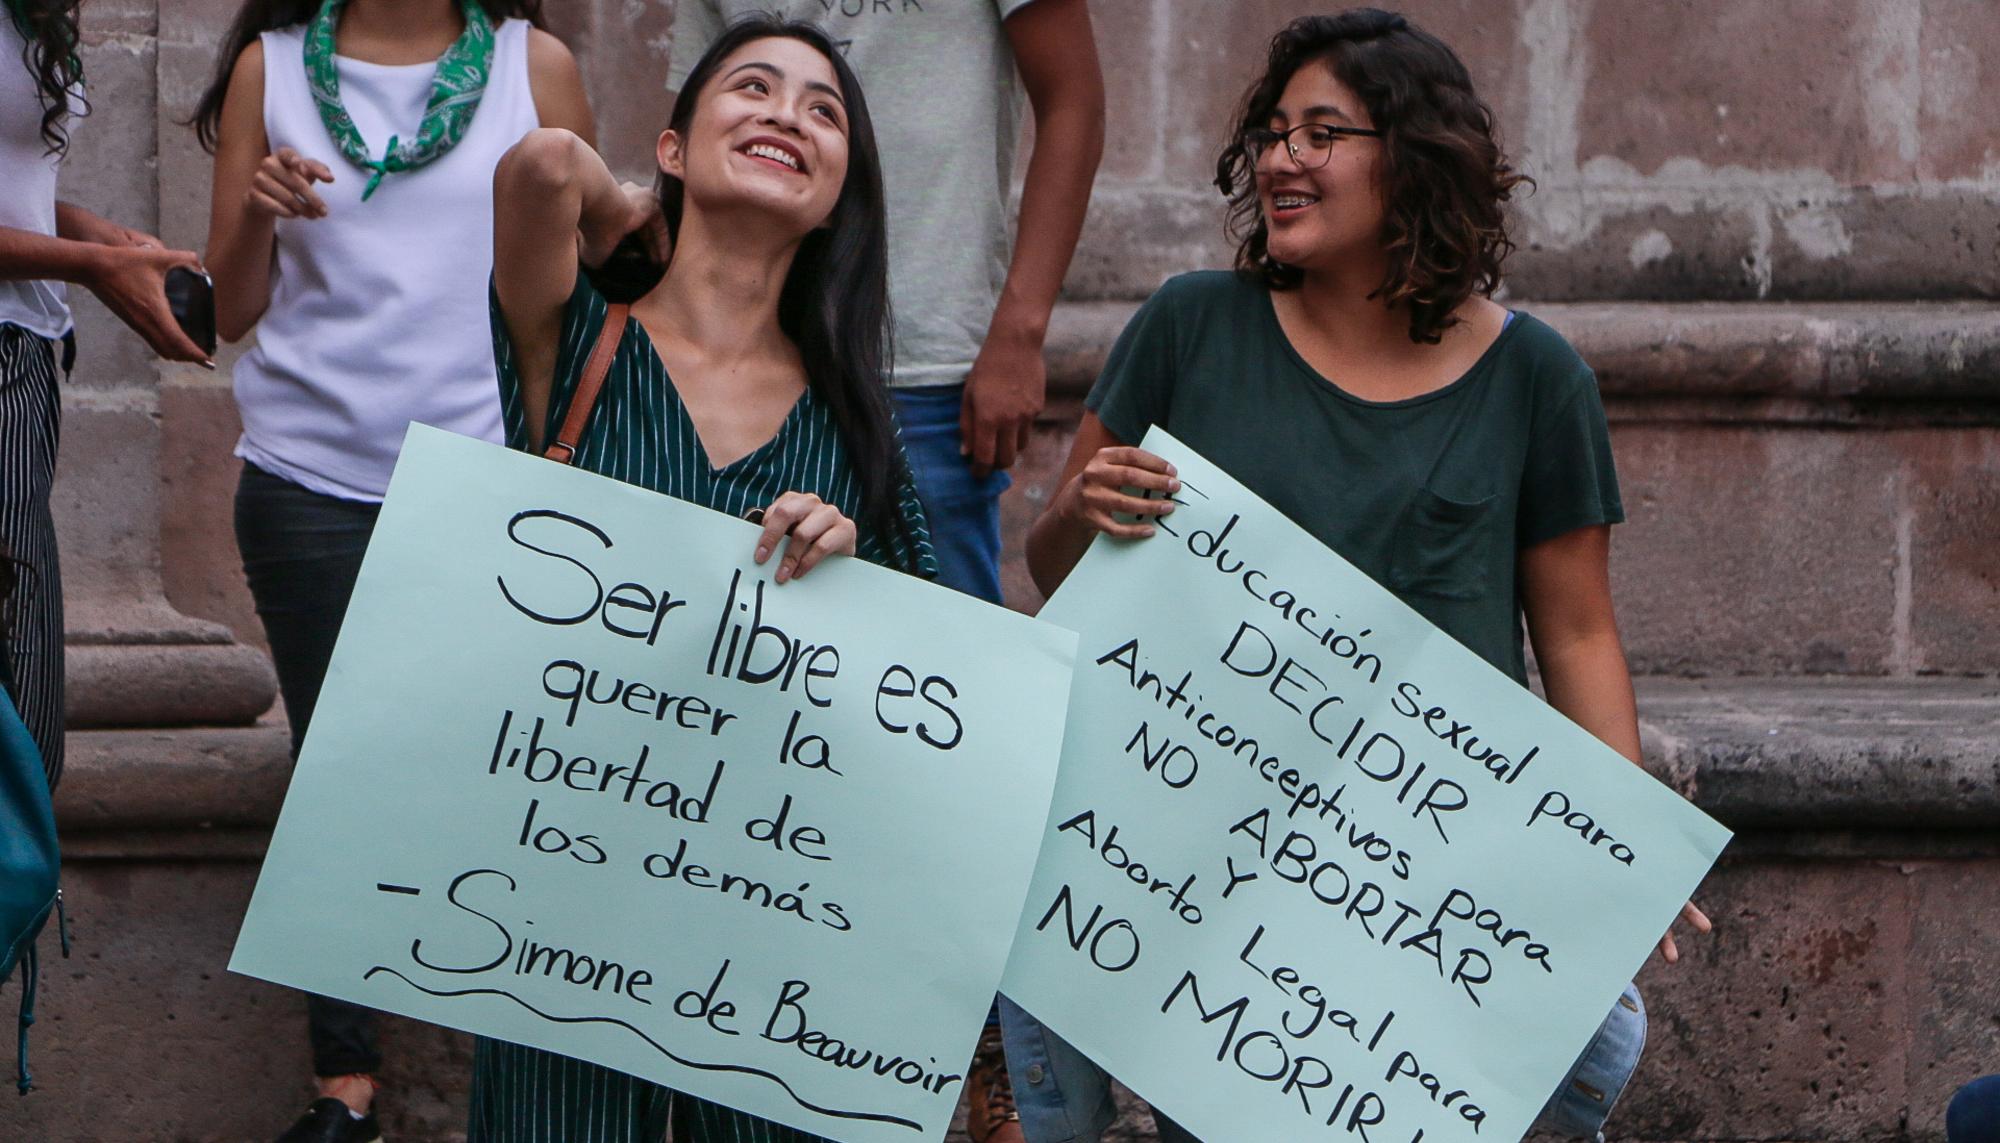 YORK
Ser libre es
querer la
libertad de
los demás
- Simone de Beauvoir
Educación sexual para
DECIDIR
Anticonceptivos para
NO ABORTAR
Y
Aborto Legal para
NO MORIR